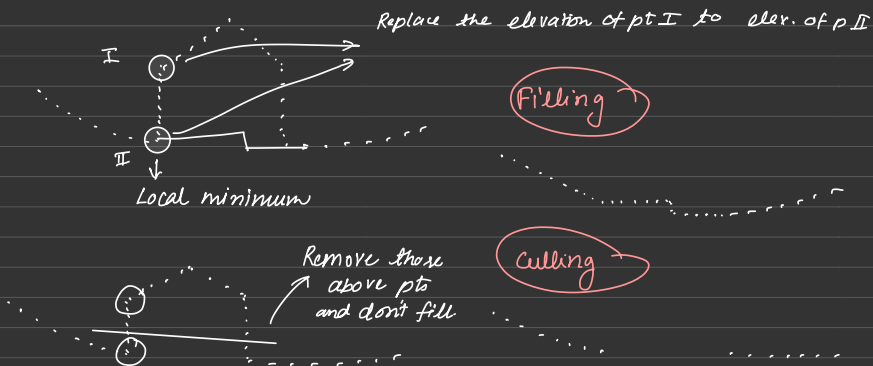 Replace the elevation of pt I to elev. of p II
I
Filling
II
Local minimum
Remove those
above pts
and don't fill
Culling